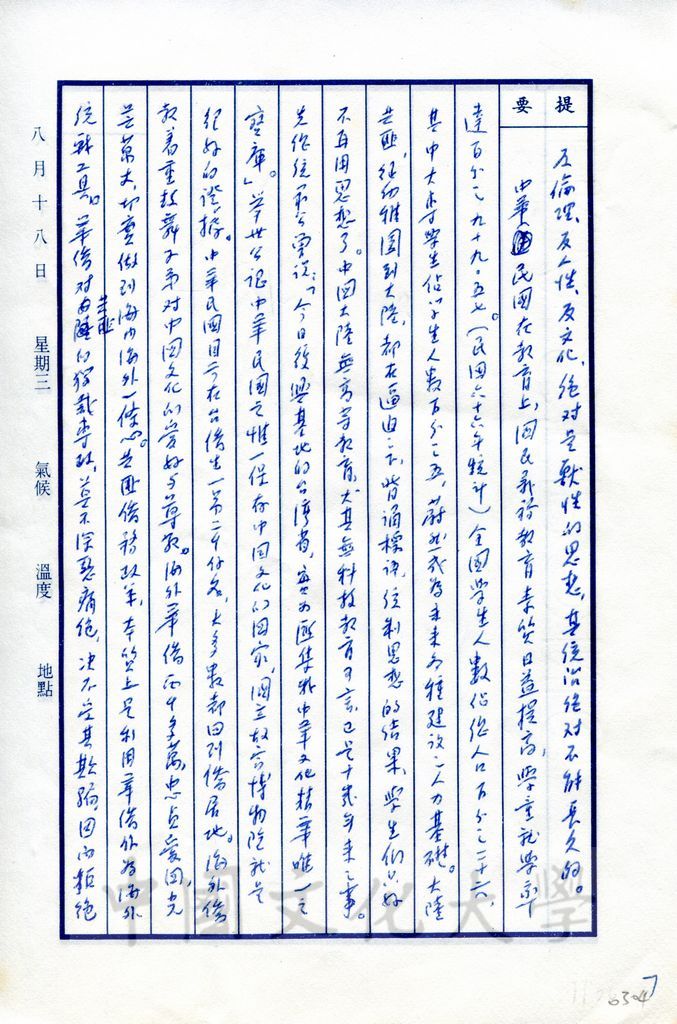 提要
反倫理、反人性、反文化，絕对是獸性的思想，其統治絕对不能長久的。
中華民國在教育上，國民義務教育素質日益提高，學童就學率
達百分之九十九‧五七。（民國六十六年統計）全國學生人數佔總人口百分之二十六，
其中大專學生佔學生人數百分之五，蔚然成為未來各種建設之人力基礎。大陸
共匪，從幼稚園到大陸，都在逼迫之下，背誦標語，統制思想的結果，學生們只好
不再用思想了。中国大陸無高等教育，尤其無科技教育可言，已是十幾年來之事。
先總統蔣公曾說：「今日復興基地的台湾省，實为匯集我中華文化精華唯一之
寶庫」。舉世公認中華民國是惟一保存中国文化的国家，國立故宮博物院就是
很好的證據。中華民國目前在台僑生一萬二千仟名，大多數都回到僑居地。海外僑
教着重鼓舞子弟对中国文化的愛好与尊敬。海外華僑两千多萬，忠貞愛国，光
芒萬丈，切實做到海内海外一條心。共匪僑務政策，本質上是利用華僑作为海外
統戰工具。華僑对共匪的獨裁專政，莫不深惡痛絕，决不受其欺騙，因而拒絕
八月十八日 星期三 氣候 溫度 地點
中國文化大學
6304